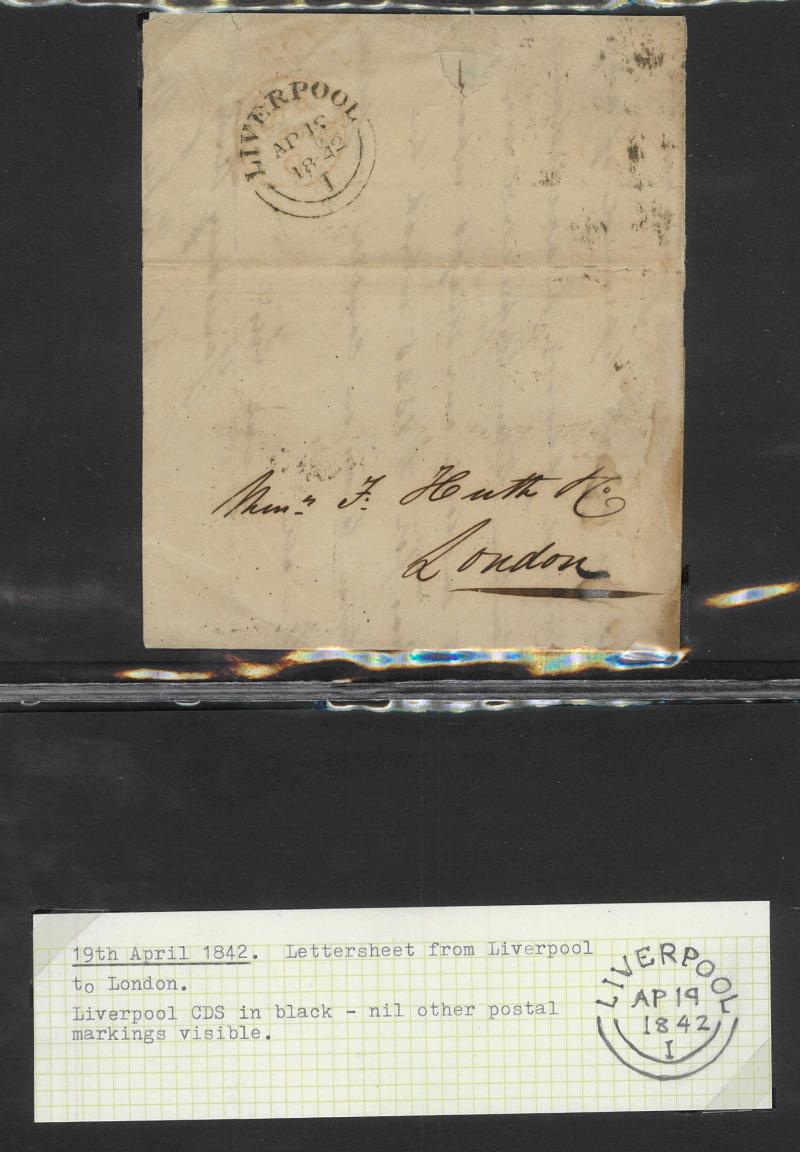 LIVERPOOL
AP 19
1842
1
Messrs F. Huth & Co
London
19th April 1842. Lettersheet from Liverpool
to London.
Liverpool CDS in black - nil other postal
markings visible.
LIVERPOOL
AP 19
1842
I